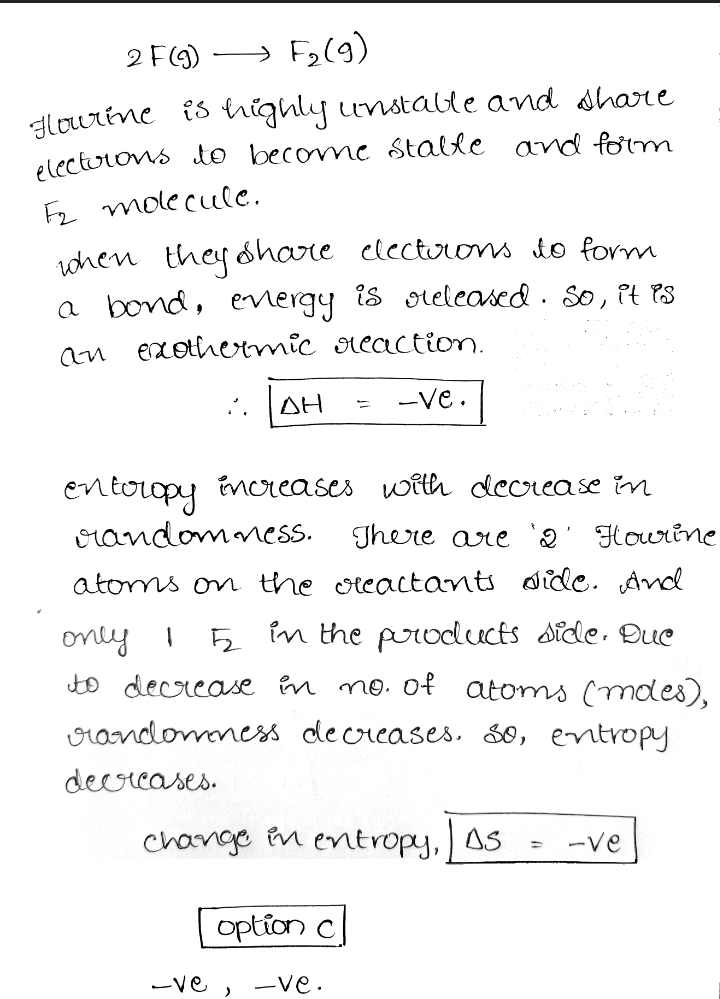 2F(g) ⟶ F₂(g)
Flourine is highly unstable and share
electrons to become stable and form
F₂ molecule.
when they share electrons to form
a bond, energy is released. So, it is
an exothermic reaction.
∴ ΔH = -ve.
entropy increases with decrease in
randomness. There are '2' Flourine
atoms on the reactants side. And
only 1 F₂ in the products side. Due
to decrease in no. of atoms (moles),
randomness decreases. So, entropy
decreases.
change in entropy, ΔS = -ve
option c
-ve, -ve.